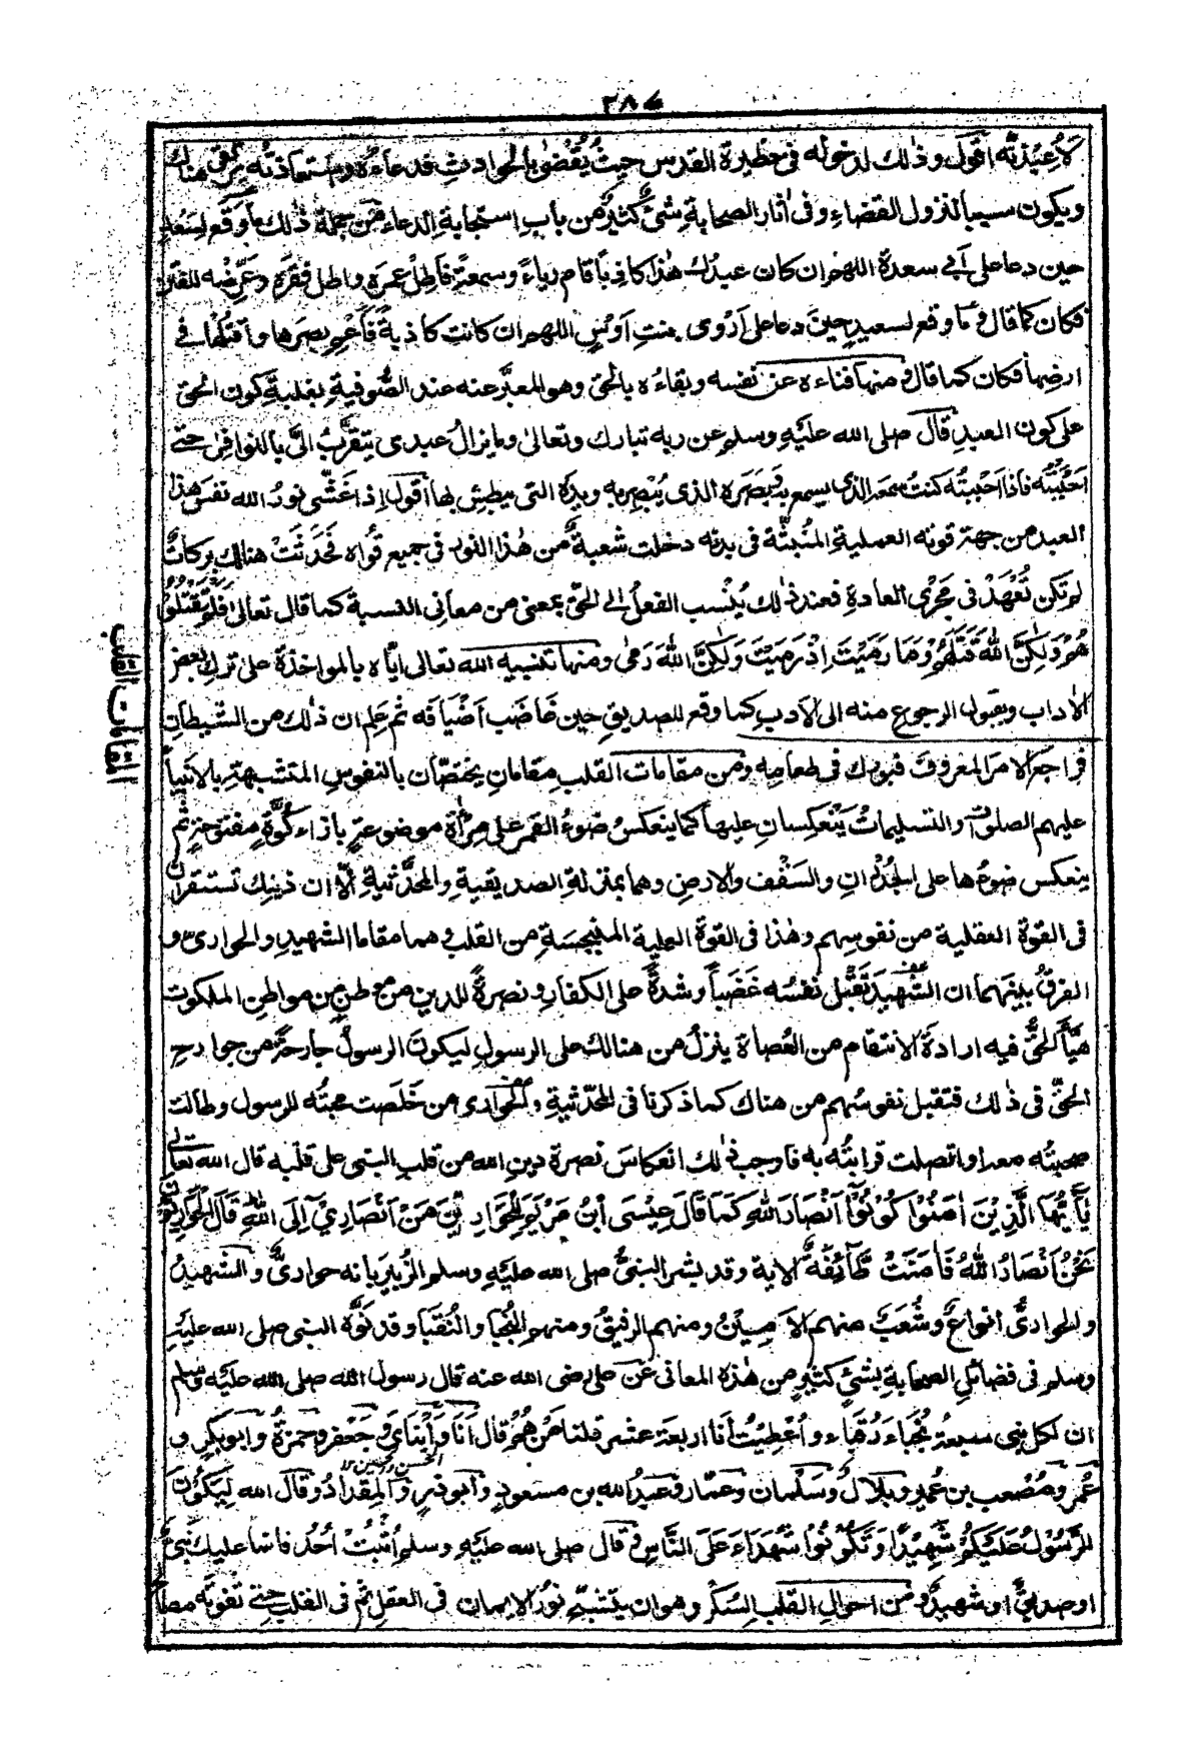 ٣٨٤
لأعيذنّه اقول وذٰلك لدخوله فى حظيرة القدس حيثُ يُقْضٰى بالحوادثِ فدعاءُه واستعاذتُه يرتقى هناك
ويكون سببا لنزول القضاءِ وفى اٰثار الصحابةِ شئٌ كثيرٌ من بابِ استجابةِ الدعاء فمن جملة ذٰلك ما وقع لسَعْدٍ
حين دعا على اَبى سعدة اللهم ان كان عبدُك هٰذا كاذباً قام رياءً وسمعةً فأطِلْ عمرَه واطل فقرَه وعَرِّضْه للفتن
فكان كما قال و ما وقع لسعيدٍ حينَ دعا على اَرْوى بنتِ اَوْسٍ اللهم ان كانت كاذبةً فأعْمِ بصرها واقتُلْها فى
ارضها فكان كما قال و منها فناءه عن نفسه وبقاءُه بالحق وهو المعبَّر عنه عند الصُّوفيةِ بغلبةِ كون الحق
على كون العبدِ قال صلى الله عليه وسلم عن ربه تبارك وتعالىٰ وما يزالُ عبدى يتقرّبُ الىَّ بالنوافلِ حتى
اُحببتُه فاذا احببتُه كنتُ سمعه الذى يسمع به وبَصَرَه الذى يُبْصِر به ويدَه التى يبطش بها اقول اِذا غَشّى نورُ الله نفسَ هذا
العبد من جهةِ قوته العملية المُنْبثّة فى بدنه دخلت شعبةٌ من هٰذا النور فى جميع قُواه فحَدَثَتْ هنالك بركاتٌ
لم تكن تُعْهَدْ فى مَجْرى العادةِ فعند ذٰلك يُنْسب الفعلُ الى الحقّ بمعنى من معانى النسبة كما قال تعالىٰ فَلَمْ تَقْتُلُوْ
هُمْ وَلٰكِنَّ اللهَ قَتَلَهُمْ وَمَا رَمَيْتَ اِذْ رَمَيْتَ وَلٰكِنَّ اللهَ رَمٰى ومنها تنبيه الله تعالى ايّاه بالمواخذةِ على تركِ بعضِ
الاٰداب وبقبول الرجوع منه الى الادبِ كما وقع للصديقِ حين غاضَب اَضْيافَه ثم عَلِم ان ذٰلك من الشيطانِ
فراجع الامرَ المعروفَ فبورك فى طعامِه ومن مقامات القلب مقامانِ يختصّان بالنفوسِ المتشبهةِ بالانبياء
عليهم الصلوٰات والتسليماتُ يَنْعكِسانِ عليها كما ينعكسُ ضوءُ القمر على مِرْاٰةٍ موضوعةٍ بازاء كُوّةٍ مفتوحةٍ ثم
ينعكس ضوءُها على الجُدْرانِ والسَقْفِ والارضِ وهما بمنزلةِ الصديقيةِ والمحدَّثيةِ الّا ان ذينك تستقران
فى القوة العقلية من نفوسِهم وهٰذا فى القوة العملية المنبجسةِ من القلب و هما مقاما الشهيدِ والحوارى و
الفرقُ بينهما ان الشهيدَ تَقْبَل نفسُه غَضَباً وشدةً على الكفارِ ونصرةً للدين من موطنٍ من مواطنِ الملكوت
هيّأ الحقُّ فيه ارادةَ الانتقام من العُصاة ينزلُ من هنالك على الرسولِ ليكونَ الرسولُ جارحةً من جوارحِ
الحقّ فى ذٰلك فتقبل نفوسُهم من هناك كما ذكرنا فى المحدّثيةِ والحوارى من خَلَصت محبتُه للرسول وطالت
صحبتُه معه او اتصلت قرابتُه به فاوجب ذٰلك انعكاسَ نصرة دينِ الله من قلبِ النبى على قلبه قال الله تعالى
يٰاَيُّهَا الَّذِيْنَ اٰمَنُوْا كُوْنُوْا اَنْصَارَ اللهِ كَمَا قَالَ عِيْسَى ابْنُ مَرْيَمَ لِلْحَوَارِيِّيْنَ مَنْ اَنْصَارِيْ اِلَى اللهِ قَالَ الْحَوَارِيُّوْنَ
نَحْنُ اَنْصَارُ اللهِ فَاٰمَنَتْ طَّآئِفَةٌ الاية وقد بشر النبىُّ صلى الله عليه وسلم الزُبيرَ بانه حوارىٌّ والشهيدُ
والحوارىُّ انواعٌ وشُعَبٌ منهم الامينُ ومنهم الرفيقُ ومنهم النُجَبا والنُقَبا وقد نَوَّه النبى صلى الله عليه
وسلم فى فضائلِ الصحابةِ بشئٍ كثيرٍ من هٰذه المعانى عن على رضى الله عنه قال رسول الله صلى الله عليه وسلم
ان لكل نبى سبعةُ نُجَباءَ رُقَباء واُعْطِيْتُ اَنا اربعةَ عشر قلنا مَنْ هُمْ قال اَنَا وَابْنَاىَ وجَعْفر وحمزةُ وابوبكر و
الحسن والحسين
عُمر ومُصْعَب بن عُمير وبلالٌ وسَلْمان وعمّار وعبدُ الله بن مسعود وابو ذرٍ والمِقْدادُ وقال الله لِيَكُوْنَ
الرَّسُوْلُ عَلَيْكُمْ شَهِيْدًا وَتَكُوْنُوْا شُهَدَاءَ عَلَى النَّاسِ و قال صلى الله عليه وسلم اُثْبُتْ اُحُدُ فانما عليك نبىٌّ
او صديقٌ او شهيدٌ ومن احوالِ القلب السُكْر وهو ان يتشبّح نورُ الايمان فى العقلِ ثم فى القلبِ حتى تفوتَه مصا
المقامات القلب